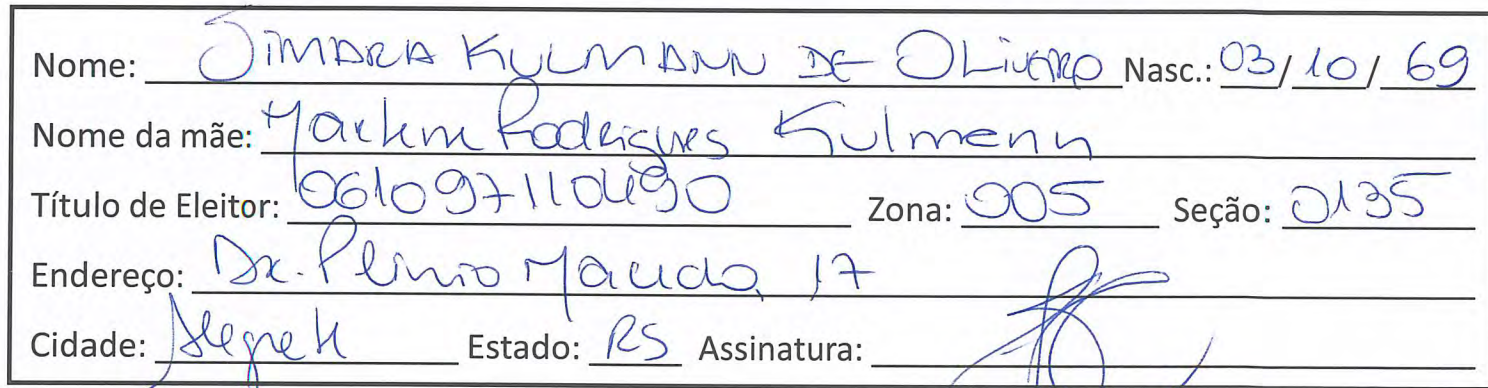 Nome: SIMARA KULMANN DE OLIVEIRA Nasc.: 03/10/69
Nome da mãe: Marlene Rodrigues Kulmann
Título de Eleitor: 061097110490 Zona: 005 Seção: 0135
Endereço: Dr. Plinio 17
Cidade: Alegrete Estado: RS Assinatura: